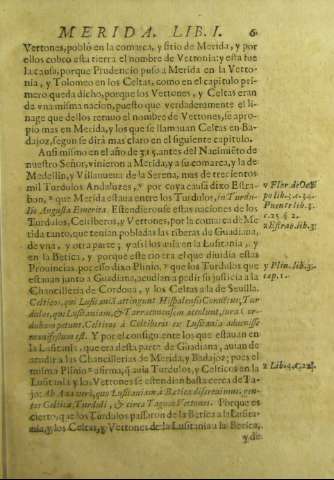 MERIDA. LIB. I. 6
Vettones, poblo en la comarca, y sitio de Merida, y por
ellos cobro esta tierra el nombre de Vettonia: y esta fue
la causa, porque Prudencio puso a Merida en la Vetto-
nia, y Tolomeo en los Celtas, como en el capitulo pri-
mero queda dicho, porque los Vettones, y Celtas eran
de vna misma nacion, puesto que verdaderamente el li-
nage que dellos retuuo el nombre de Vettones, se apro-
pio mas en Merida, y los que se llamauan Celtas en Ba-
dajoz, segun se dira mas claro en el siguiente capitulo.
Ansi mismo en el año de antes del Nacimiẽto de
nuestro Señor, vinieron a Merida, y a su comarca, y la de
Medellin, y Villanueua de la Serena, mas de trecientos
mil Turdulos Andaluzes, y por cuya causa dixo Estra-
bon, que Merida estaua entre los Turdulos, in Turdu-
lis Augusta Emerita. Estendierõse estas naciones de los
Turdulos, Celtiberos, y Vettones, por la comarca de Me
rida tanto, que tenian pobladas las riberas de Guadiana,
de vna, y otra parte; y assi los auia en la Lusitania, y
en la Betica, y porque este rio era el que diuidia estas
Prouincias, por esso dixo Plinio, que los Turdulos que
estauan junto a Guadiana, acudian a pedir su justicia a la
Chancilleria de Cordoua, y los Celtas a la de Seuilla.
Celticos, qui Lusitaniã attingunt Hispalensis Conuentus, Tur
dulos, qui Lusitaniam, & Tarraconensem accolunt, iura Cor
dubam petunt. Celticos à Celtiberis ex Lusitania aduenisse
manifestum est. Y por el consiguiente los que estauan en
la Lusitania, que era desta parte de Guadiana, auian de
acudir a las Chancillerias de Merida, y Badajoz; pues el
mismo Plinio afirma, q̃ auia Turdulos, y Celticos en la
Lusitania y los Vettones se estendian hasta cerca de Ta-
jo: Ab Ana verò, quo Lusitaniam à Betica discreuimus, gen-
tes Celticæ Turduli, & circa Tagum Vettones. Porque es
cierto, que los Turdulos passaron de la Betica a la Lusita-
nia, y los Celtas, y Vettones de la Lusitania a la Betica,
y de
y Flor. de Oca
po lib. 3. c. 34.
Puente lib. 3.
c. 25. § 2.
z Estrab. lib. 3.
y Plin. lib. 3.
cap. 1.
z Lib. 4. c.